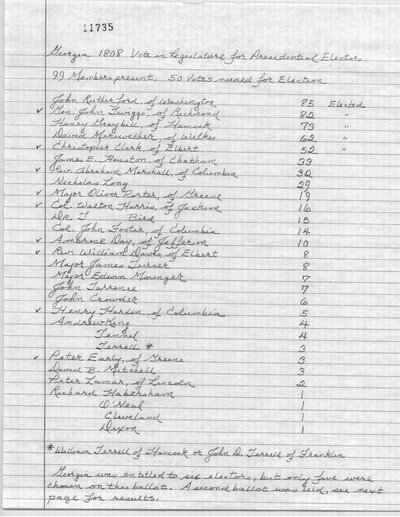 11735
Georgia 1808 Vote in Legislature for Presidential Electors
99 Members present. 50 Votes needed for Election
John Rutherford, of Washington 85 Elected
✓ Gen John Twiggs, of Richmond 82 "
Henry Graybill, of Hancock 73 "
David Meriwether, of Wilkes 62 "
✓ Christopher Clark, of Elbert 52 "
James E. Houston, of Chatham 33
✓ Rev. Abraham Marshall, of Columbia 32
Nicholas Long 29
✓ Major Oliver Porter, of Greene 19
✓ Col. Walton Harris, of Jackson 16
Dr. T Bird 15
Col. John Foster, of Columbia 14
✓ Ambrose Day, of Jefferson 10
✓ Rev. William Davis, of Elbert 8
Major James Turner 8
Major Edwin Mounger 7
John Torrence 7
John Crowder 6
✓ Henry Harden, of Columbia 5
Andrew King 4
Fennel 4
Terrell * 3
✓ Peter Early, of Greene 3
David B. Mitchell 3
Peter Lamar, of Lincoln 2
Richard Habersham 1
O'Neal 1
Cleveland 1
Dixon 1
* William Terrell of Hancock or John D. Terrell of Franklin
Georgia was entitled to six electors, but only five were
chosen on this ballot. A second ballot was held, see next
page for results.